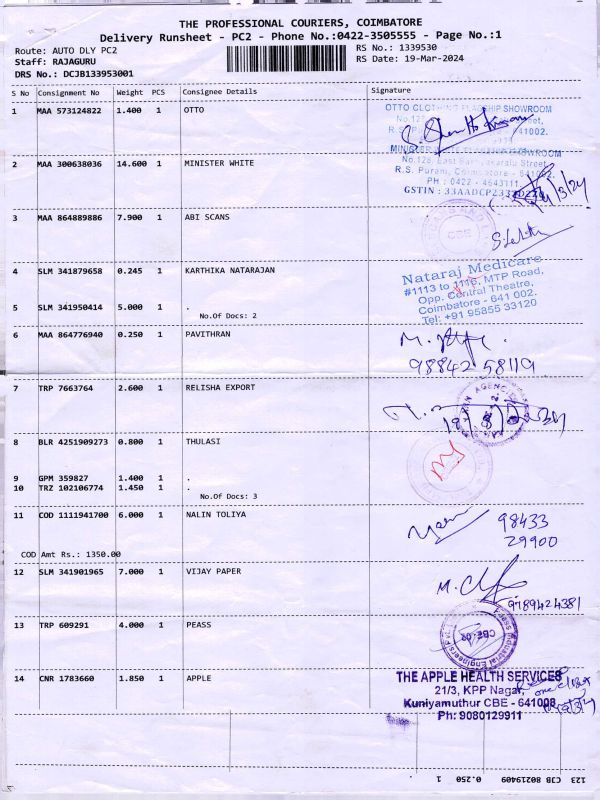 THE PROFESSIONAL COURIERS, COIMBATORE
Delivery Runsheet - PC2 - Phone No.:0422-3505555 - Page No.:1
Route: AUTO DLY PC2
RS No.: 1339530
Staff: RAJAGURU
RS Date: 19-Mar-2024
DRS No.: DCJB133953001
S No Consignment No Weight PCS Consignee Details Signature
1 MAA 573124822 1.400 1 OTTO
OTTO CLOTHING FLAGSHIP SHOWROOM
R.S. 641002.
2 MAA 300638036 14.600 1 MINISTER WHITE
MINISTER SHOWROOM
No.128, East
R.S. Puram, Coimbatore - 641002.
PH : 0422 - 4643111
GSTIN :
3 MAA 864889886 7.900 1 ABI SCANS
CBE
4 SLM 341879658 0.245 1 KARTHIKA NATARAJAN
Nataraj Medicare
#1113 to 1116, MTP Road,
Opp. Central Theatre,
Coimbatore - 641 002.
Tel: +91 95855 33120
5 SLM 341950414 5.000 1 .
No.Of Docs: 2
6 MAA 864776940 0.250 1 PAVITHRAN
98842 58119
7 TRP 7663764 2.600 1 RELISHA EXPORT
8 BLR 4251909273 0.800 1 THULASI
9 GPM 359827 1.400 1 .
10 TRZ 102106774 1.450 1 .
No.Of Docs: 3
11 COD 1111941700 6.000 1 NALIN TOLIYA
98433
29900
COD Amt Rs.: 1350.00
12 SLM 341901965 7.000 1 VIJAY PAPER
9789424381
13 TRP 609291 4.000 1 PEASS
14 CNR 1783660 1.850 1 APPLE
THE APPLE HEALTH SERVICES
21/3, KPP Nagar,
Kuniyamuthur CBE - 641008
Ph: 9080129911
123 CJB 80219409 0.250 1